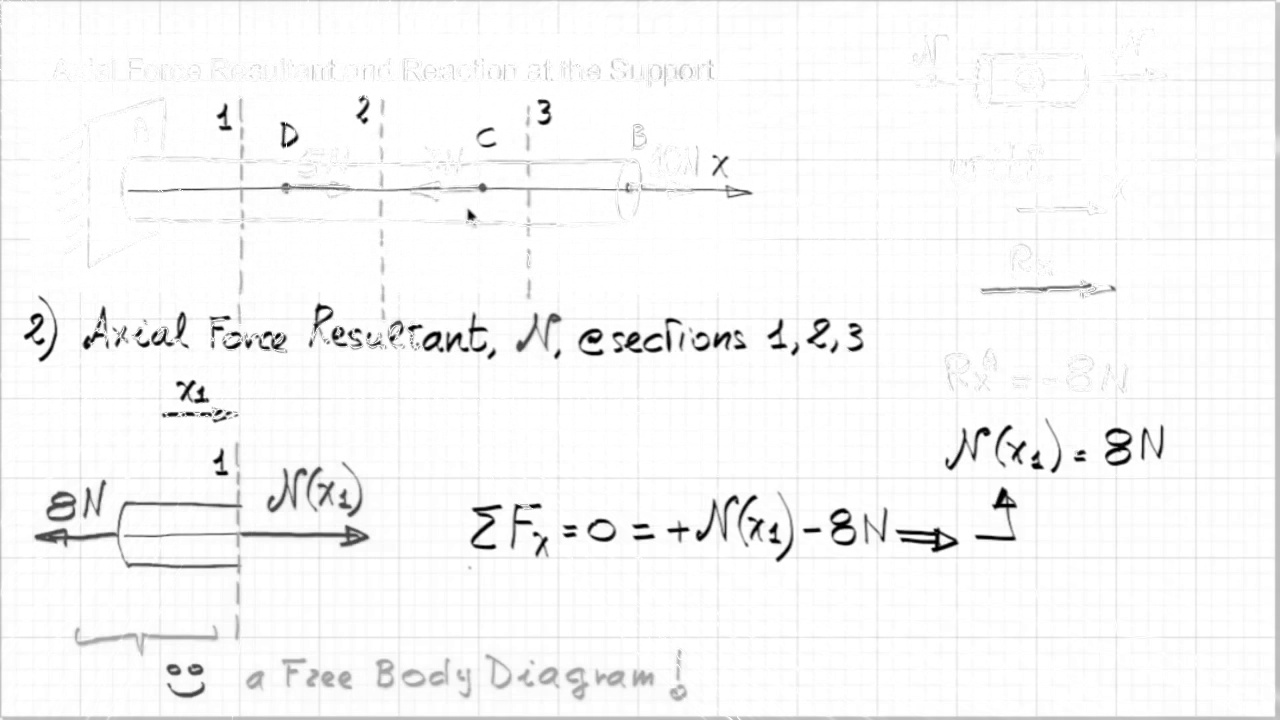 Axial Force Resultant and Reaction at the Support
1 D 2 C 3 B
A 5N 7N 10N x
N N
x
Rx
2) Axial Force Resultant, N, @ sections 1, 2, 3
RxA = -8N
x1
N(x1) = 8N
1
8N N(x1)
ΣFx = 0 = +N(x1) - 8N ⇒
a Free Body Diagram!